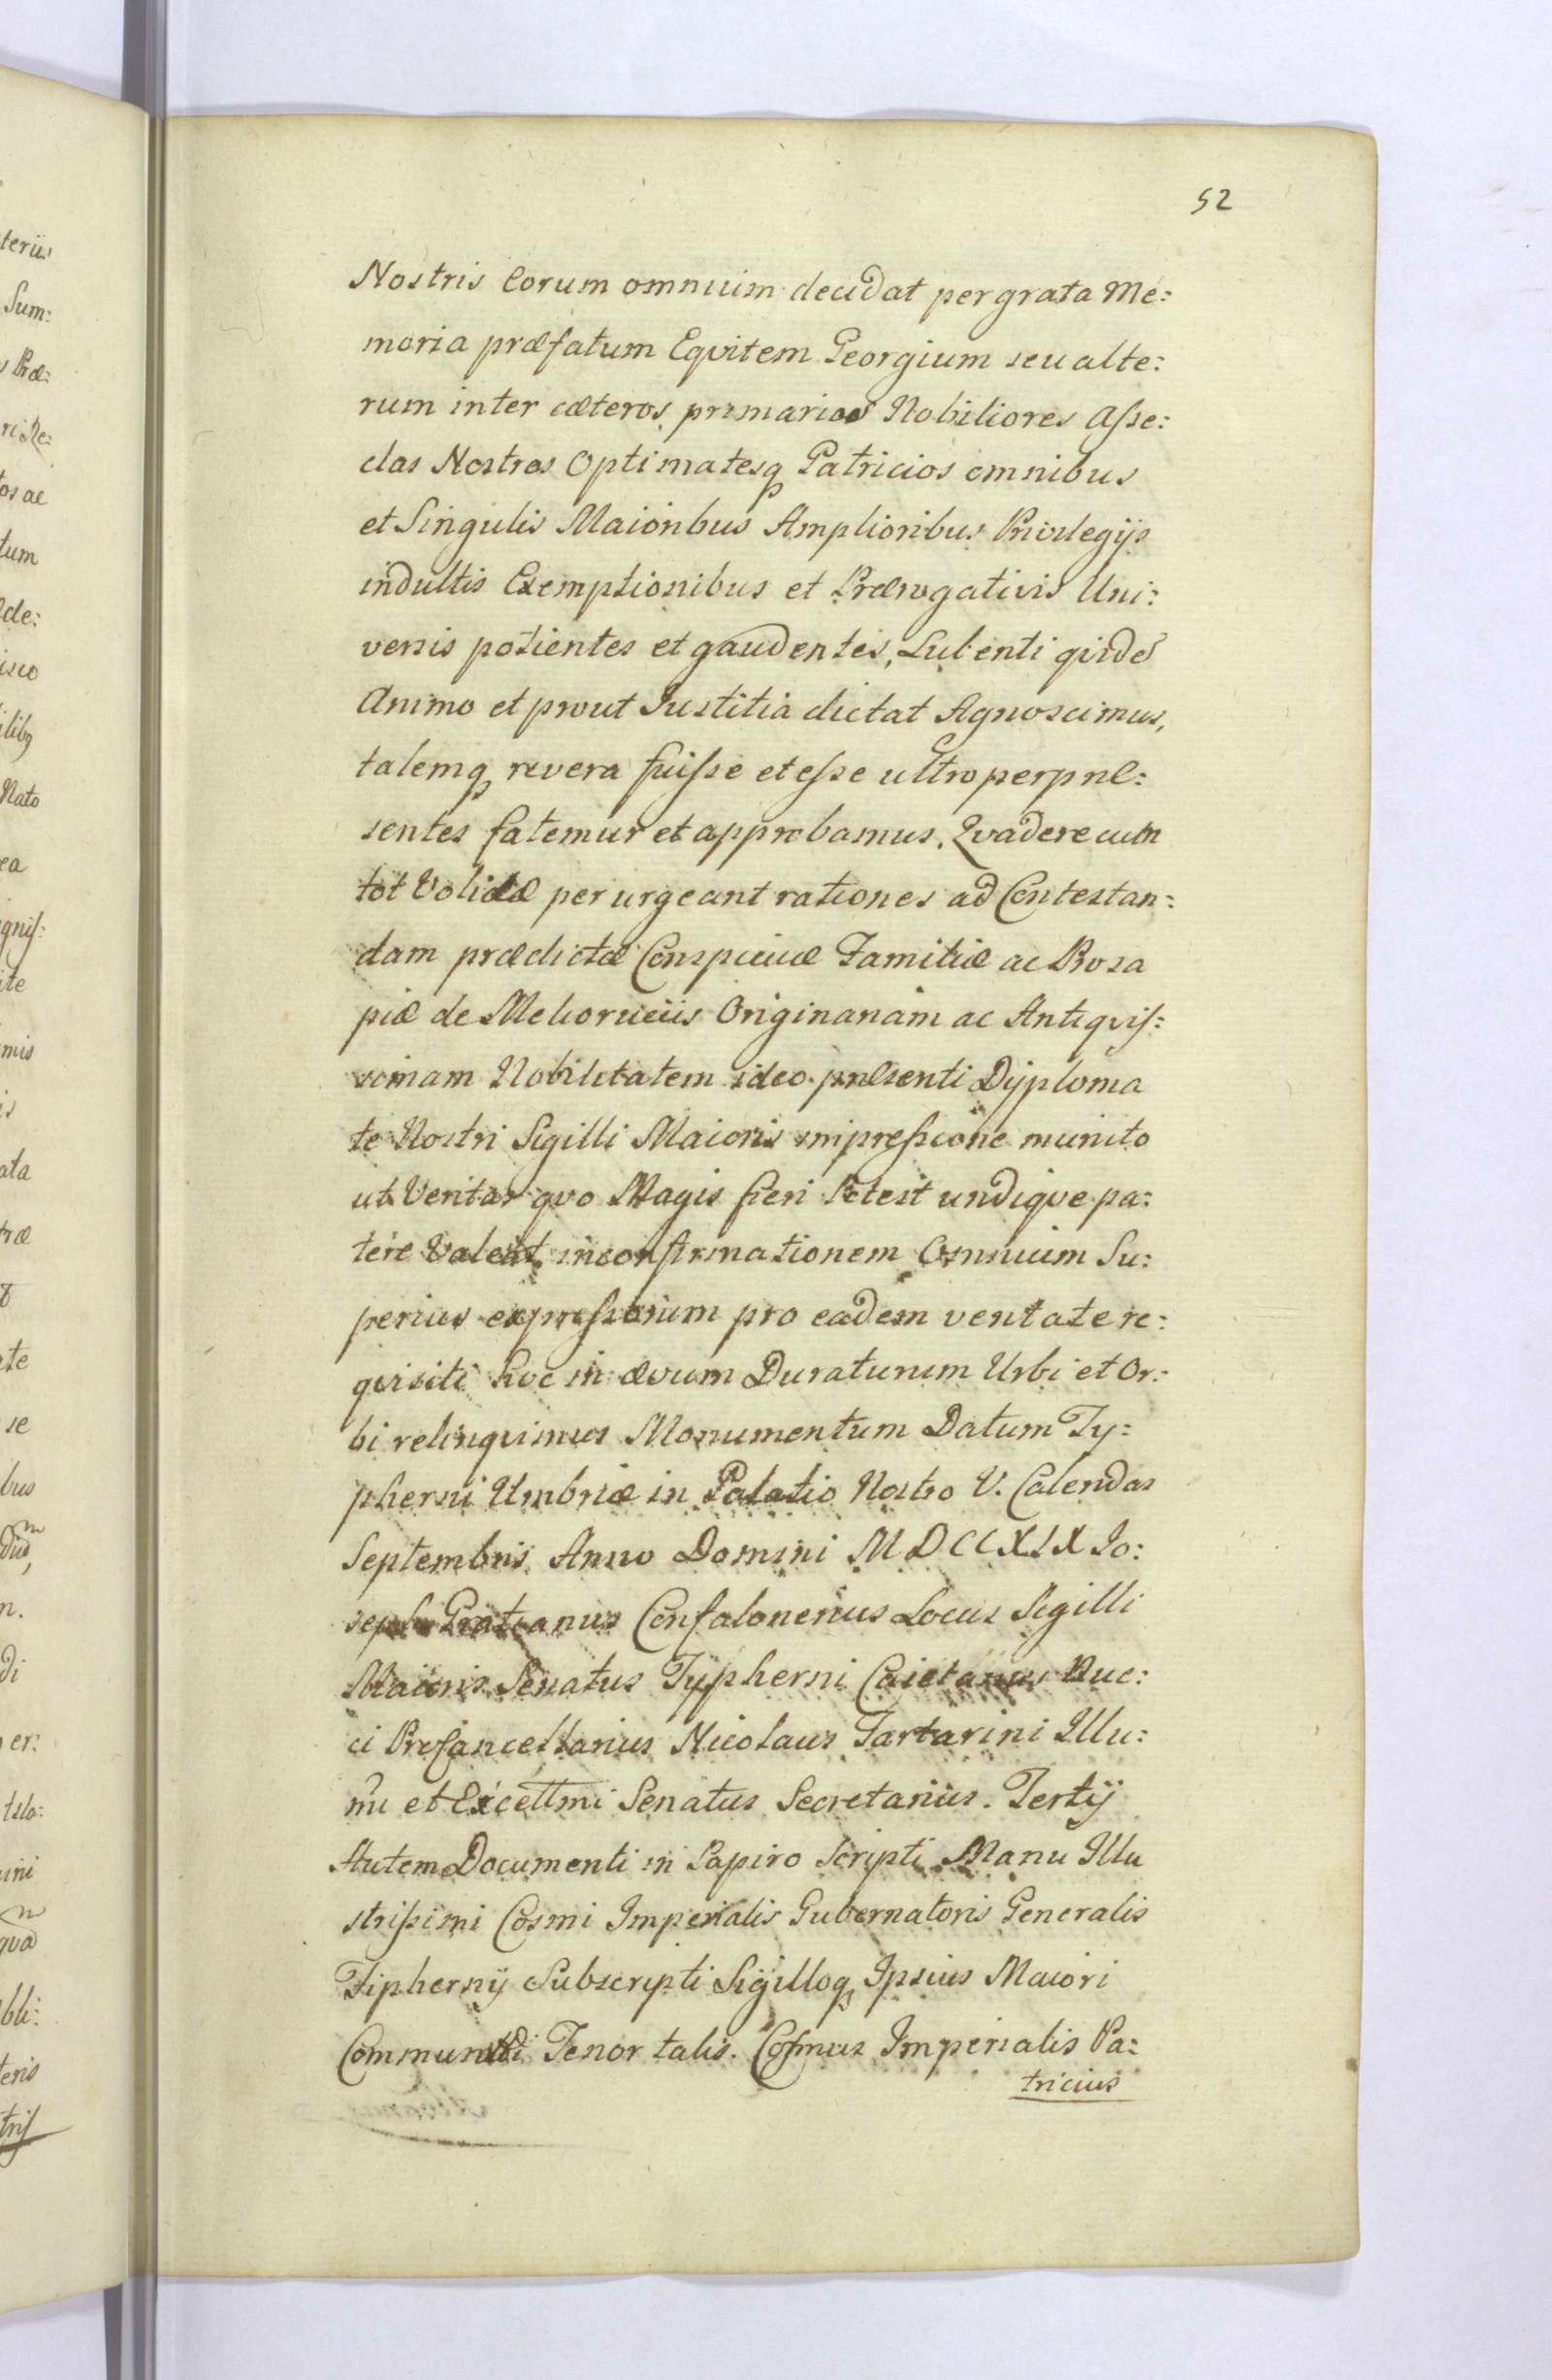 52
Nostris Eorum omnium decidat pergrata Me:
moria præfatum Eqvitem Georgium seu alte:
rum inter cæteros primarios Nobiliores Asse:
clas Nostros Optimatesq Patricios omnibus
et Singulis Maioribus Amplioribus Privilegijs
indultis Exemptionibus et Prærogativis Uni:
versis potientes et gaudentes, Lubenti qvidē
Animo et prout Iustitia dictat Agnoscimus,
talemq revera fuisse et esse ultro per pnle:
sentes fatemur et approbamus. Qvadere cum
tot Volidæ per urgeant rationes ad Contestan:
dam prædictæ Conspicuæ Familiæ ac Prosa
piæ de Meliorucijs Originariam ac Antiqvis:
simam Nobilitatem ideo pnlsenti Dijploma
te Nostri Sigilli Maioris impressione munito
ut Veritas qvo Magis fieri Potest undiqve pa:
tere Valeat, in confirmationem Omnium Su:
perius expressorum pro eadem veritate re:
qvisiti hoc in ævum Duraturum Urbi et Or:
bi relinqvimus Monumentum Datum Ty:
pherni Umbriæ in Palatio Nostro V. Calendas
Septembris Anno Domini MDCCXIX Io:
seph Gratianus Confalonerius Locus Sigilli
Maioris Senatus Typherni Cajetanus Buc:
ci Profancellarius Nicolaus Tartarini Illu:
mi et Excellmi Senatus Secretarius. Tertij
Autem Documenti in Papiro Scripti Manu Illu
strissimi Cosmi Imperialis Gubernatoris Generalis
Tiphernij Subscripti Sigilloq Ipsius Maiori
Tenor talis. Cosmus Imperialis Pa:
tricius